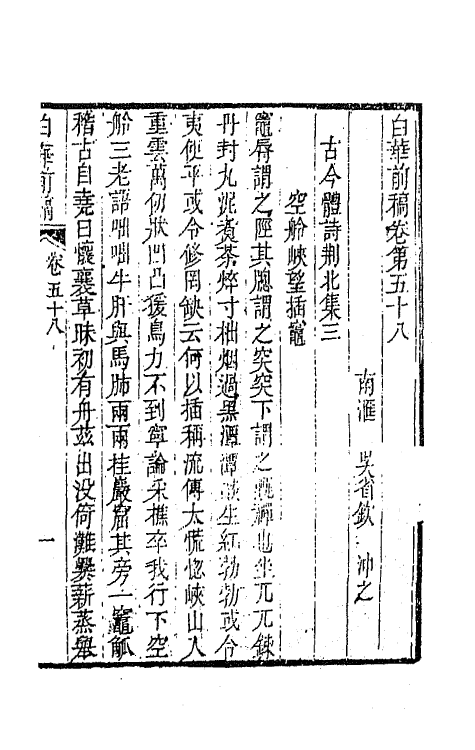 白華前稿卷第五十八
南滙 吳省欽 冲之
古今體詩荆北集三
空舲峽望插竈
竈脣謂之陘其牎謂之突突下謂之甈禪也坐兀兀鍊
丹封九泥煑茶焠寸柮烟過黑潭潭談生紅勃勃或令
夷使平或令修罔缺云何以插稱流傳太慌惚峽山入
重雲萬仞狀凹凸猨鳥力不到寧論采樵卒我行下空
舲三老諳咄咄牛肝與馬肺兩兩挂巖窟其旁一竈觚
稽古自堯日懷襄草昧初有舟茲出没倚難爨薪蒸舉
白華前稿
卷五十八
一